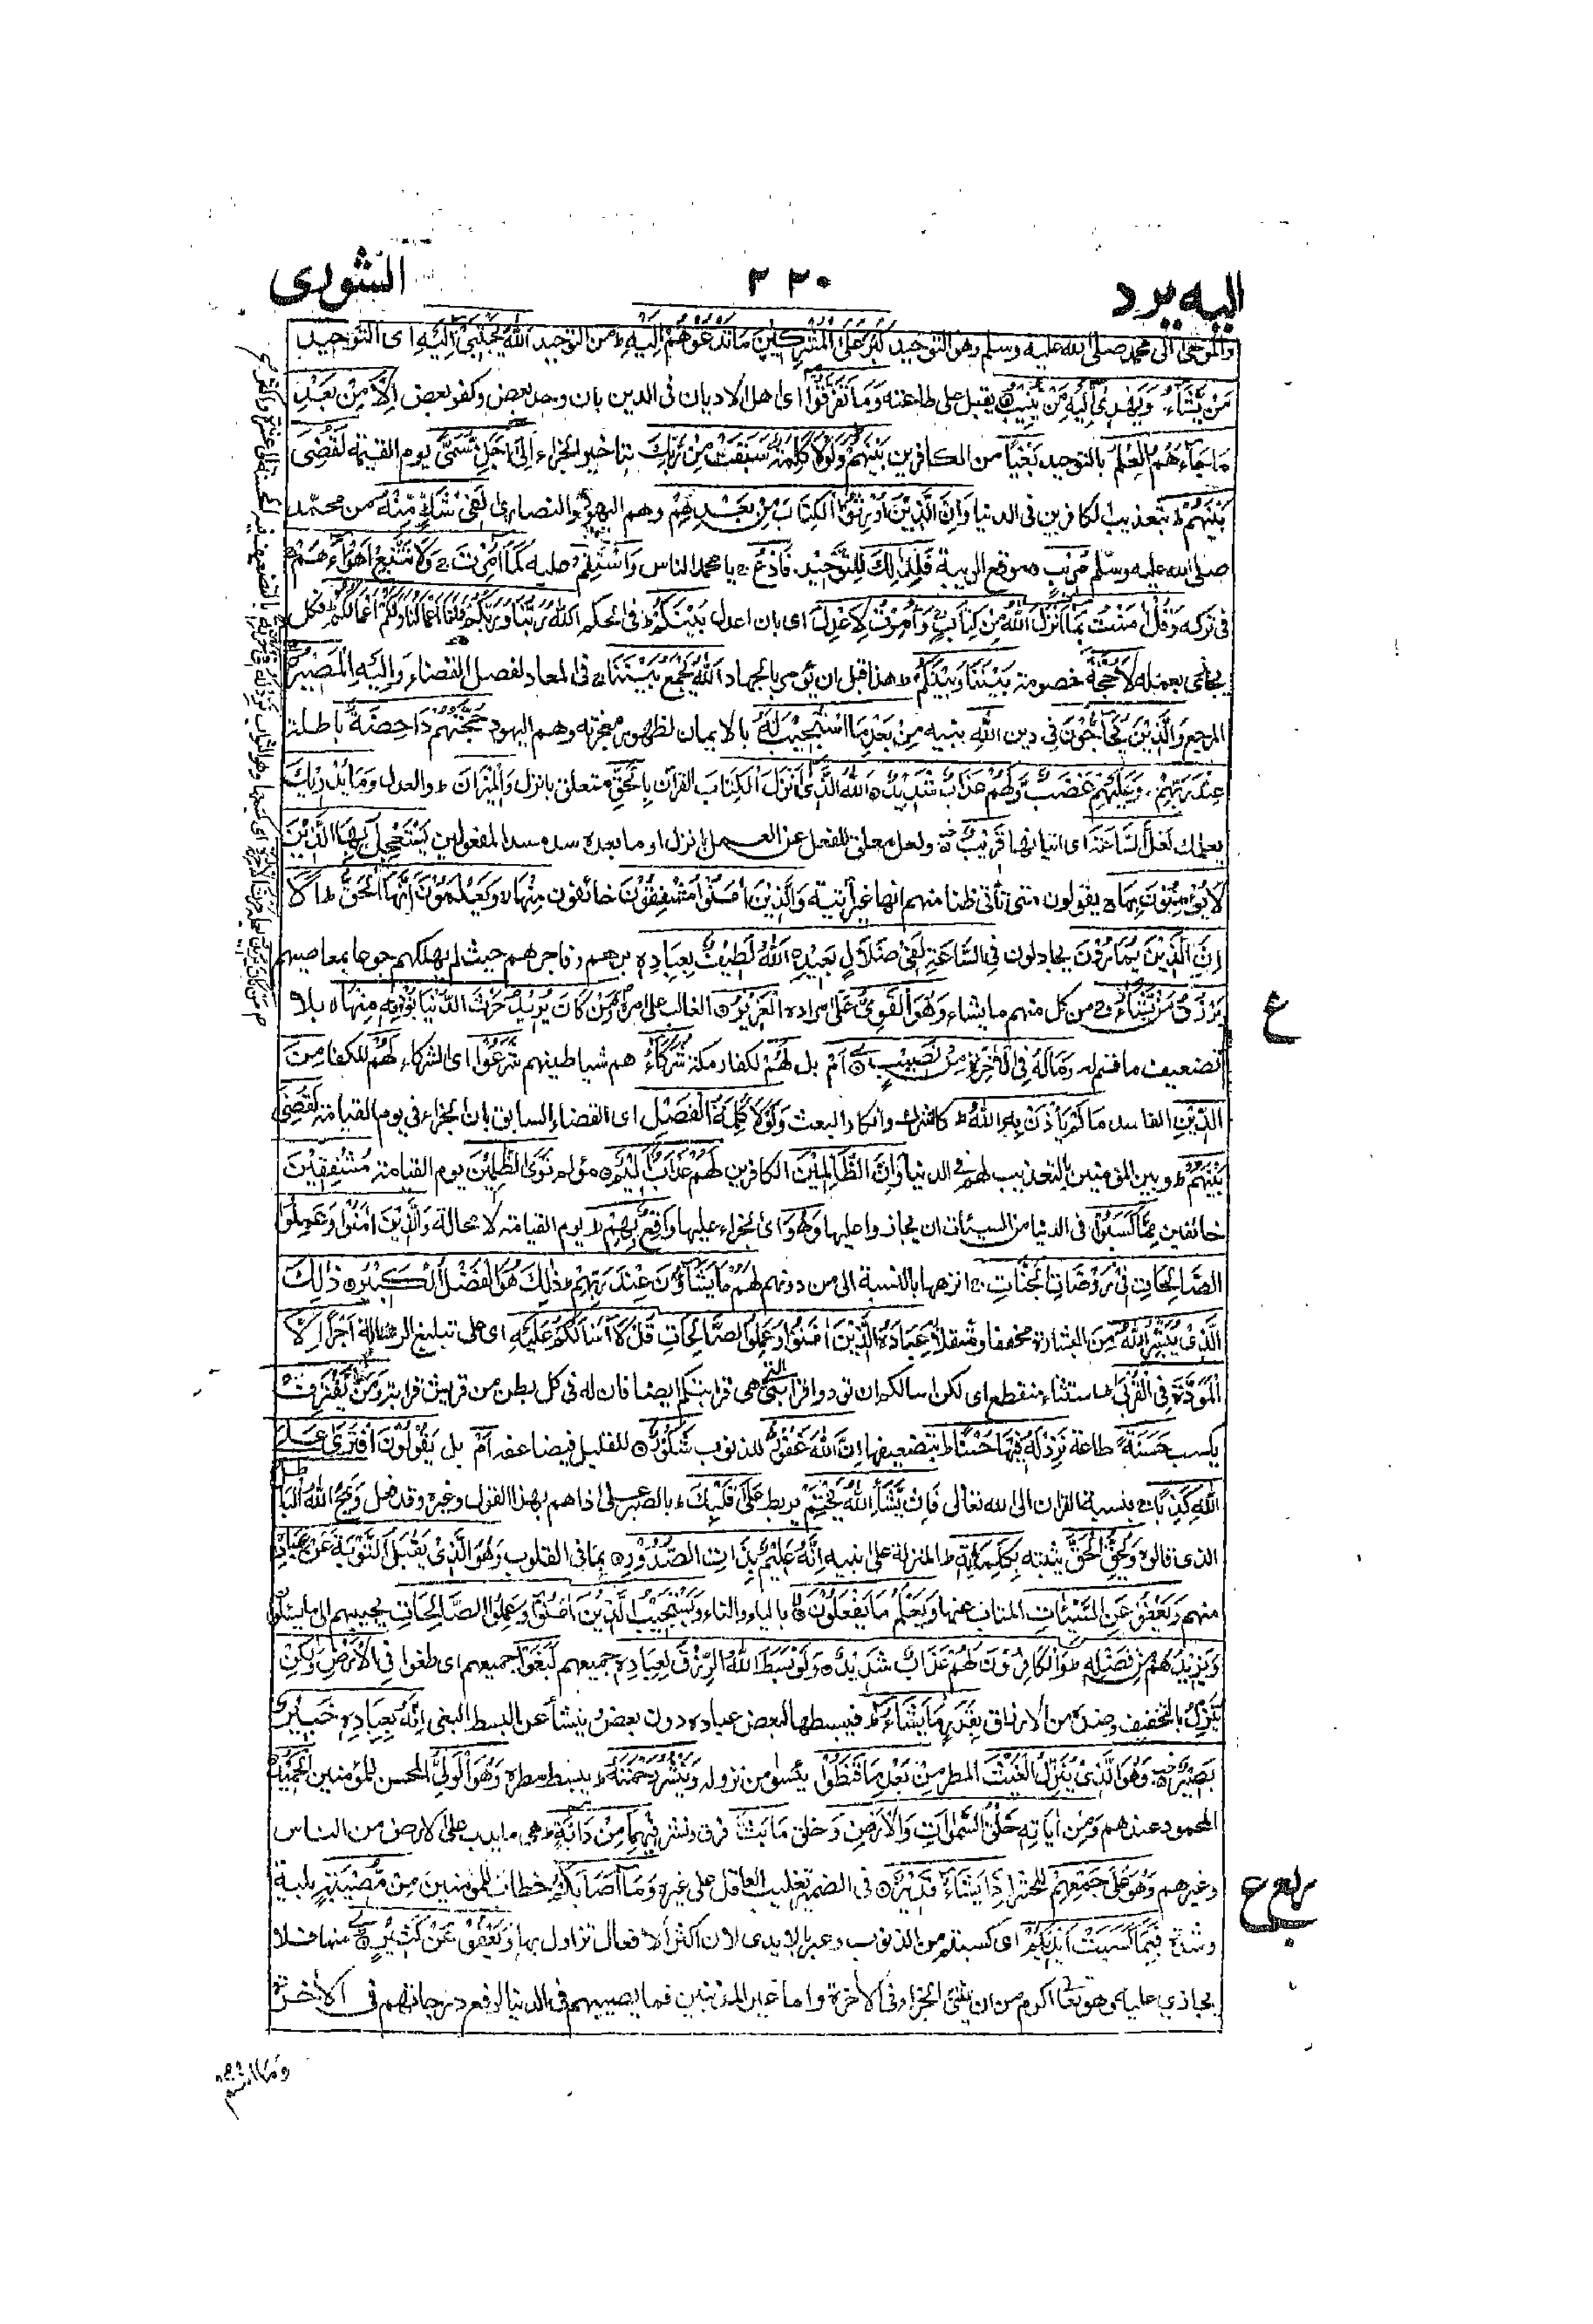 اليه يرد
٢٢٠
الشورى
والموحى الى محمد صلى الله عليه وسلم وهو التوحيد كَبُرَ عَلَى الْمُشْرِكِيْنَ مَا تَدْعُوْهُمْ اِلَيْهِ ط من التوحيد اَللّٰهُ يَجْتَبِيْ اِلَيْهِ اى التوحيد
مَنْ يَّشَآءُ وَيَهْدِيْ اِلَيْهِ مَنْ يُّنِيْبُ ۝ يقبل على طاعته وَمَا تَفَرَّقُوْا اى اهل الاديان فى الدين بان وحد بعض وكفر بعض اِلَّا مِنْ بَعْدِ
مَا جَآءَهُمُ الْعِلْمُ بالتوحيد بَغْيًا من الكافرين بَيْنَهُمْ وَلَوْلَا كَلِمَةٌ سَبَقَتْ مِنْ رَّبِّكَ بتاخير الجزاء اِلٰى اَجَلٍ مُّسَمًّى يوم القيمة لَقُضِيَ
بَيْنَهُمْ ط بتعذيب الكافرين فى الدنيا وَاِنَّ الَّذِيْنَ اُوْرِثُوا الْكِتَابَ مِنْ بَعْدِهِمْ وهم اليهود والنصارى لَفِيْ شَكٍّ مِّنْهُ من محمد
صلى الله عليه وسلم مُرِيْبٍ ۝ موقع الريبة فَلِذٰلِكَ للتوحيد فَادْعُ ج يا محمد الناس وَاسْتَقِمْ عليه كَمَا اُمِرْتَ ج وَلَا تَتَّبِعْ اَهْوَآءَهُمْ
فى تركه وَقُلْ اٰمَنْتُ بِمَا اَنْزَلَ اللّٰهُ مِنْ كِتَابٍ وَاُمِرْتُ لِاَعْدِلَ اى بان اعدل بَيْنَكُمْ ط فى الحكم اَللّٰهُ رَبُّنَا وَرَبُّكُمْ لَنَا اَعْمَالُنَا وَلَكُمْ اَعْمَالُكُمْ فكل
يجازى بعمله لَا حُجَّةَ خصومة بَيْنَنَا وَبَيْنَكُمْ ط هذا قبل ان يؤمر بالجهاد اَللّٰهُ يَجْمَعُ بَيْنَنَا ج فى المعاد لفصل القضاء وَاِلَيْهِ الْمَصِيْرُ
المرجع وَالَّذِيْنَ يُحَآجُّوْنَ فِيْ دين اللّٰهِ نبيه مِنْ بَعْدِ مَا اسْتُجِيْبَ لَهٗ بالايمان لظهور معجزته وهم اليهود حُجَّتُهُمْ دَاحِضَةٌ باطلة
عِنْدَ رَبِّهِمْ وَعَلَيْهِمْ غَضَبٌ وَّلَهُمْ عَذَابٌ شَدِيْدٌ ۝ اَللّٰهُ الَّذِيْ اَنْزَلَ الْكِتَابَ القرآن بِالْحَقِّ متعلق بانزل وَالْمِيْزَانَ ط والعدل وَمَا يُدْرِيْكَ
يعلمك لَعَلَّ السَّاعَةَ اى اتيانها قَرِيْبٌ ۝ ولعل معلق للفعل عن العمل او ما بعده سد مسد المفعولين يَسْتَعْجِلُ بِهَا الَّذِيْنَ
لَا يُؤْمِنُوْنَ بِهَا ج يقولون متى تأتى ظنا منهم انها غير آتية وَالَّذِيْنَ اٰمَنُوْا مُشْفِقُوْنَ خائفون مِنْهَا وَيَعْلَمُوْنَ اَنَّهَا الْحَقُّ ط اَلَا
اِنَّ الَّذِيْنَ يُمَارُوْنَ يجادلون فِي السَّاعَةِ لَفِيْ ضَلَالٍ بَعِيْدٍ ۝ اَللّٰهُ لَطِيْفٌ بِعِبَادِهٖ برهم وفاجرهم حيث لم يهلكهم جوعا بمعاصيهم
يَرْزُقُ مَنْ يَّشَآءُ ج من كل منهم ما يشاء وَهُوَ الْقَوِيُّ على مراده الْعَزِيْزُ ۝ الغالب على امره مَنْ كَانَ يُرِيْدُ حَرْثَ الدُّنْيَا نُؤْتِهٖ مِنْهَا بلا
تضعيف ما قسم له وَمَا لَهٗ فِي الْاٰخِرَةِ مِنْ نَّصِيْبٍ ۝ اَمْ بل لَهُمْ لكفار مكة شُرَكَآءُ هم شياطينهم شَرَعُوْا اى الشركاء لَهُمْ للكفار مِنَ
الدِّيْنِ الفاسد مَا لَمْ يَأْذَنْ بِهِ اللّٰهُ ط كالشرك وانكار البعث وَلَوْلَا كَلِمَةُ الْفَصْلِ اى القضاء السابق بان الجزاء فى يوم القيامة لَقُضِيَ
بَيْنَهُمْ ط وبين المؤمنين بالتعذيب لهم فى الدنيا وَاِنَّ الظَّالِمِيْنَ الكافرين لَهُمْ عَذَابٌ اَلِيْمٌ ۝ مؤلم تَرَى الظّٰلِمِيْنَ يوم القيامة مُشْفِقِيْنَ
خائفين مِمَّا كَسَبُوْا فى الدنيا من السيئات ان يجازوا عليها وَهُوَ اى الجزاء عليها وَاقِعٌ بِهِمْ ط يوم القيامة لا محالة وَالَّذِيْنَ اٰمَنُوْا وَعَمِلُوا
الصَّالِحَاتِ فِيْ رَوْضَاتِ الْجَنَّاتِ ج انزهها بالنسبة الى من دونهم لَهُمْ مَا يَشَآؤُنَ عِنْدَ رَبِّهِمْ ط ذٰلِكَ هُوَ الْفَضْلُ الْكَبِيْرُ ۝ ذٰلِكَ
الَّذِيْ يُبَشِّرُ اللّٰهُ مِنَ البشارة مخففا ومثقلا عِبَادَهُ الَّذِيْنَ اٰمَنُوْا وَعَمِلُوا الصَّالِحَاتِ قُلْ لَا اَسْأَلُكُمْ عَلَيْهِ اى على تبليغ الرسالة اَجْرًا اِلَّا
الْمَوَدَّةَ فِي الْقُرْبٰى ط استثناء منقطع اى لكن اسالكم ان تودوا قرابتى التى هى قرابتكم ايضا فان له فى كل بطن من قريش قرابة وَمَنْ يَّقْتَرِفْ
يكسب حَسَنَةً طاعة نَزِدْ لَهٗ فِيْهَا حُسْنًا ط بتضعيفها اِنَّ اللّٰهَ غَفُوْرٌ للذنوب شَكُوْرٌ ۝ للقليل فيضاعفه اَمْ بل يَقُوْلُوْنَ افْتَرٰى عَلَى
اللّٰهِ كَذِبًا ج بنسبة القران الى الله تعالى فَاِنْ يَّشَأِ اللّٰهُ يَخْتِمْ يربط عَلٰى قَلْبِكَ ط بالصبر على اذاهم بهذا القول وغيره وقد فعل وَيَمْحُ اللّٰهُ الْبَاطِلَ
الذى قالوه وَيُحِقُّ الْحَقَّ يثبته بِكَلِمَاتِهٖ ط المنزلة على نبيه اِنَّهٗ عَلِيْمٌ بِذَاتِ الصُّدُوْرِ ۝ بما فى القلوب وَهُوَ الَّذِيْ يَقْبَلُ التَّوْبَةَ عَنْ عِبَادِهٖ
منهم وَيَعْفُوْا عَنِ السَّيِّئَاتِ المتاب عنها وَيَعْلَمُ مَا يَفْعَلُوْنَ ۝ بالياء والتاء وَيَسْتَجِيْبُ الَّذِيْنَ اٰمَنُوْا وَعَمِلُوا الصَّالِحَاتِ يجيبهم الى ما يسئلون
وَيَزِيْدُهُمْ مِّنْ فَضْلِهٖ ط وَالْكَافِرُوْنَ لَهُمْ عَذَابٌ شَدِيْدٌ ۝ وَلَوْ بَسَطَ اللّٰهُ الرِّزْقَ لِعِبَادِهٖ جميعهم لَبَغَوْا جميعهم اى طغوا فِي الْاَرْضِ وَلٰكِنْ
يُّنَزِّلُ بالتخفيف وضده من الارزاق بِقَدَرٍ مَّا يَشَآءُ ط فيبسطها لبعض عباده دون بعض وينشأ عن البسط البغى اِنَّهٗ بِعِبَادِهٖ خَبِيْرٌ
بَصِيْرٌ ۝ وَهُوَ الَّذِيْ يُنَزِّلُ الْغَيْثَ المطر مِنْ بَعْدِ مَا قَنَطُوْا يئسوا من نزوله وَيَنْشُرُ رَحْمَتَهٗ ط يبسط مطره وَهُوَ الْوَلِيُّ المحسن للمؤمنين الْحَمِيْدُ
المحمود عندهم وَمِنْ اٰيَاتِهٖ خَلْقُ السَّمٰوَاتِ وَالْاَرْضِ وَخلق مَا بَثَّ فرق ونشر فِيْهِمَا مِنْ دَآبَّةٍ ط هى ما يدب على الارض من الناس
وغيرهم وَهُوَ عَلٰى جَمْعِهِمْ للحشر اِذَا يَشَآءُ قَدِيْرٌ ۝ فى الضمير تغليب العاقل على غيره وَمَا اَصَابَكُمْ خطاب للمؤمنين مِنْ مُّصِيْبَةٍ بلية
وشدة فَبِمَا كَسَبَتْ اَيْدِيْكُمْ اى كسبتم من الذنوب وعبر بالايدى لان اكثر الافعال تزاول بها وَيَعْفُوْا عَنْ كَثِيْرٍ ۝ منها فلا
يجازى عليه وهو تعالى اكرم من ان يثنى الجزاء فى الاخرة واما غير المذنبين فما يصيبهم فى الدنيا لرفع درجاتهم فى الاخرة
ع
وما انتم